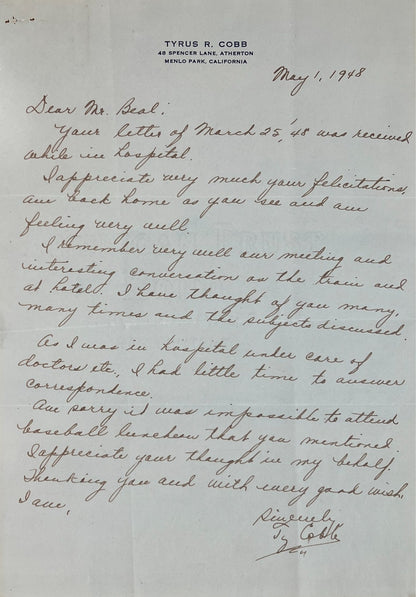 TYRUS R. COBB
48 SPENCER LANE, ATHERTON
MENLO PARK, CALIFORNIA
May 1, 1948
Dear Mr. Beal:
Your letter of March 25, '48 was received
while in hospital.
I appreciate very much your felicitations,
am back home as you see and am
feeling very well.
I remember very well our meeting and
interesting conversation on the train and
at hotel. I have thought of you many,
many times and the subjects discussed.
As I was in hospital under care of
doctors etc., I had little time to answer
correspondence.
Am sorry it was impossible to attend
baseball luncheon that you mentioned
I appreciate your thought in my behalf.
Thanking you and with every good wish,
I am,
Sincerely
Ty Cobb